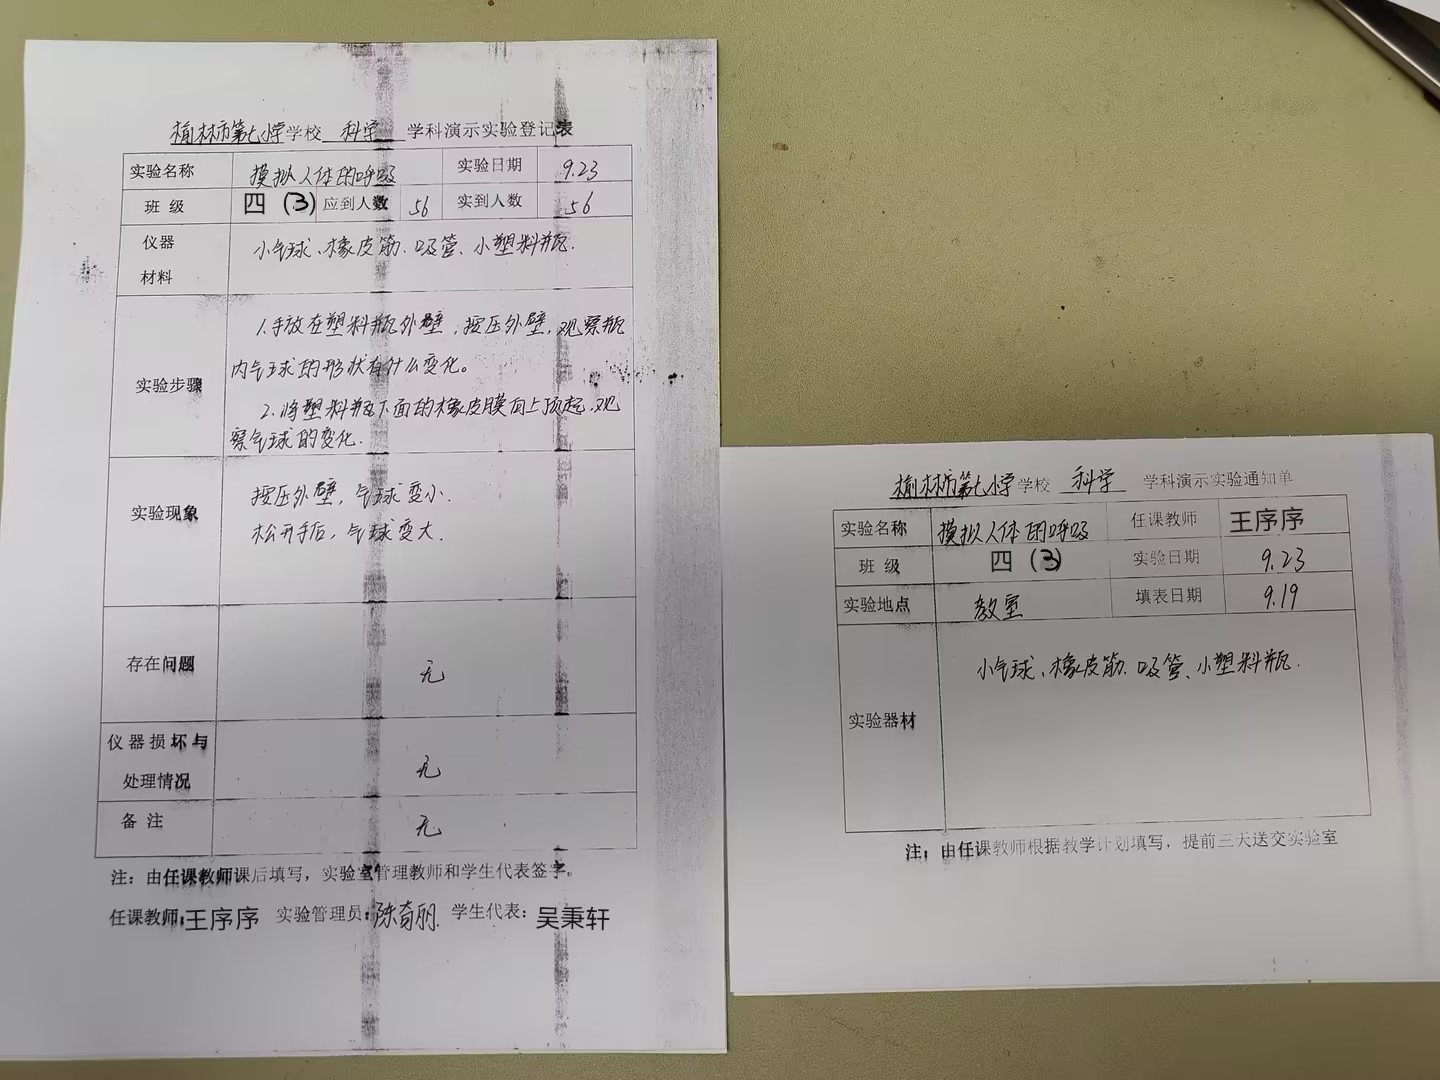 榆林市第七小学学校 科学 学科演示实验登记表
实验名称 模拟人体的呼吸 实验日期 9.23
班 级 四 (3) 应到人数 56 实到人数 56
仪器
材料
小气球、橡皮筋、吸管、小塑料瓶.
实验步骤
1.手放在塑料瓶外壁,按压外壁,观察瓶
内气球的形状有什么变化。
2.将塑料瓶下面的橡皮膜向上顶起,观
察气球的变化.
实验现象
按压外壁,气球变小.
松开手后,气球变大.
存在问题 无
仪器损坏与
处理情况
无
备 注 无
注：由任课教师课后填写，实验室管理教师和学生代表签字。
任课教师:王序序 实验管理员:陈育丽. 学生代表：吴秉轩
榆林市第七小学学校 科学 学科演示实验通知单
实验名称 模拟人体的呼吸 任课教师 王序序
班 级 四 (3) 实验日期 9.23
实验地点 教室 填表日期 9.19
实验器材 小气球、橡皮筋、吸管、小塑料瓶.
注：由任课教师根据教学计划填写，提前三天送交实验室